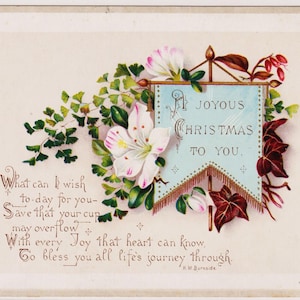 A JOYOUS
CHRISTMAS
TO YOU.
What can I wish
to-day for you—
Save that your cup
may overflow
With every Joy that heart can know,
Go bless you all life's journey through.
H.M. Burnside